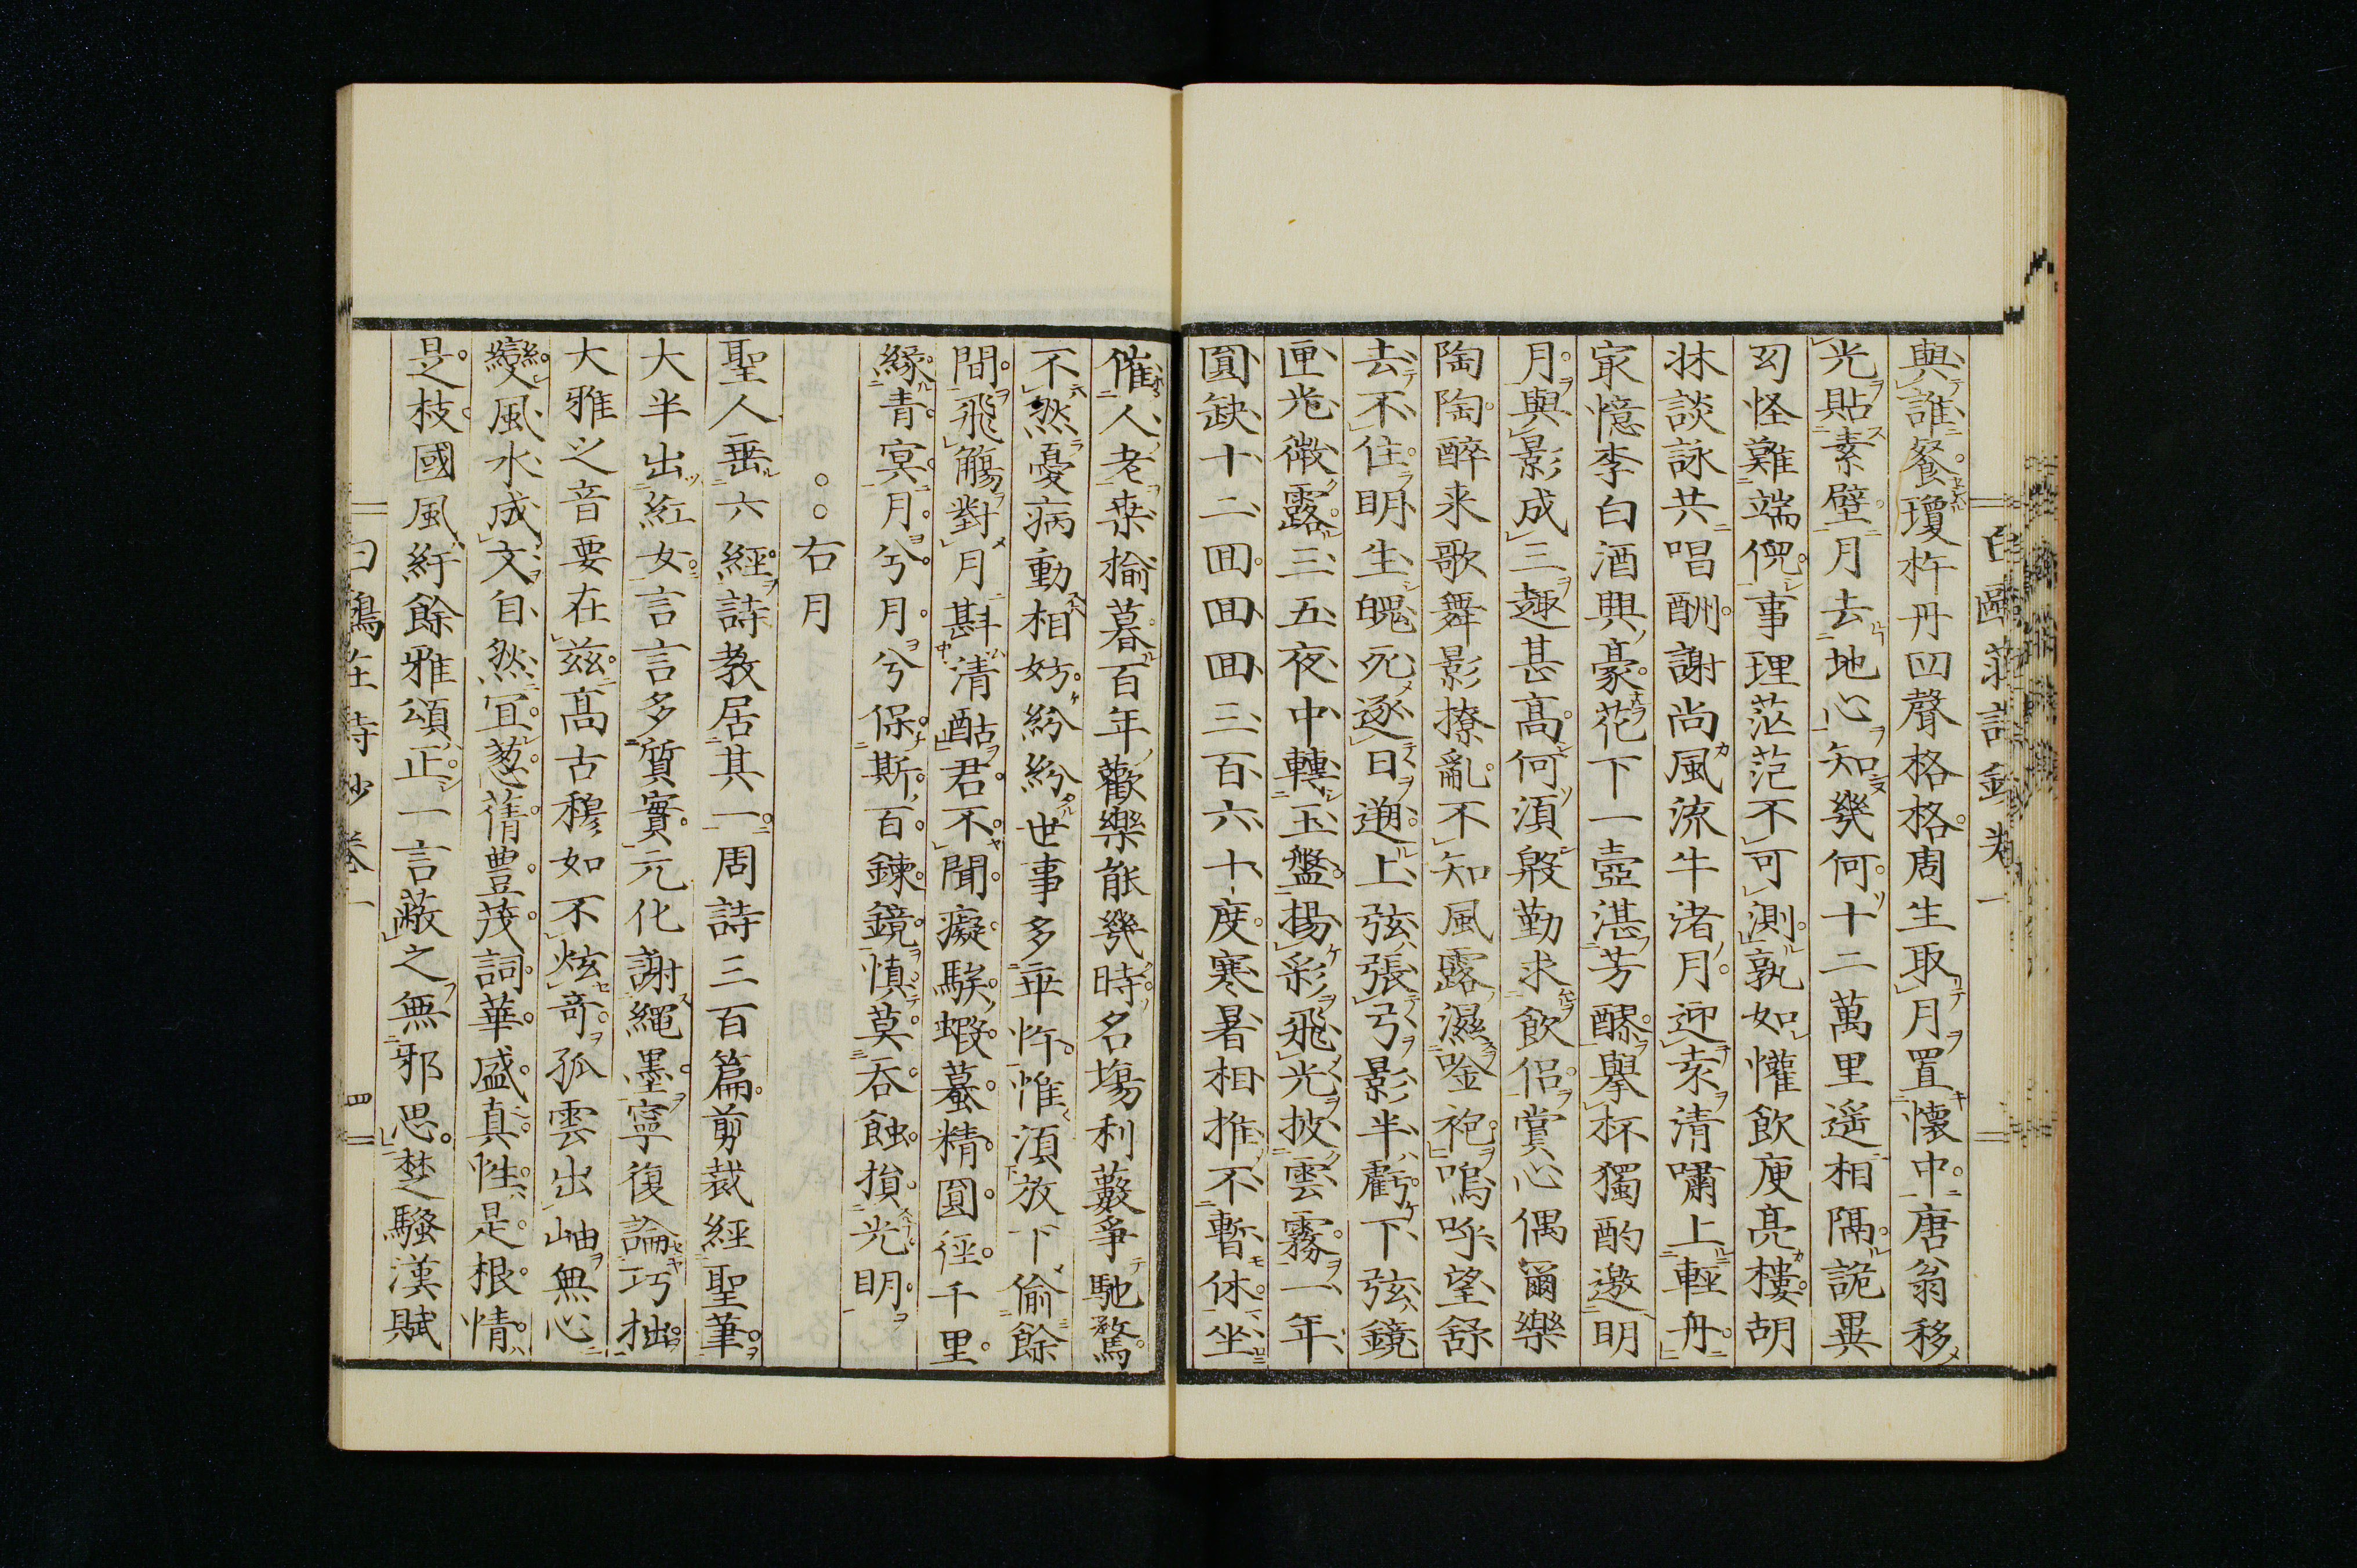 與誰餐瓊杵丹凹聲格格周生取月置懷中唐翁移
光貼素壁月去地心知幾何十二萬里遥相隔詭異
幻怪難端倪事理茫范不可測孰如懽飲庾亮樓胡
牀談詠共唱酬謝尚風流牛渚月迎来清嘯上輕舟
家憶李白酒興豪花下一壺湛芳醪擧杯獨酌邀明
月與影成三趣甚髙何須殷勤求飲侶賞心偶爾樂
陶陶陶醉来歌舞影撩亂不知風露濕唫袍嗚呼望舒
去不住明生魄死逐日遡上弦張弓影半虧下弦鏡
匣光微露三五夜中轉玉盤揚彩飛光披雲霧一年
圓缺十二回回回三百六十度寒暑相推不暫休坐
催人老桒榆暮百年歡樂能幾時名塲利藪爭馳騖
不然憂病動相妨紛紛世事多乖忤惟須放下偷餘
間飛觴對月斟清酤君不聞癡騃蝦蟇精圓徑千里
緣青冥月兮月兮保斯百鍊鏡慎莫吞蝕損光明
右月
聖人垂六經詩教居其一周詩三百篇剪裁經聖筆
大半出紅女言言多質實元化謝繩墨寧復論巧拙
大雅之音要在兹髙古穆如不炫竒孤雲出岫無心
戀風水成文自然宜葱蒨豊茂詞華盛真性是根情
是枝國風紆餘雅頌正一言蔽之無邪思楚騷漢賦
白鷗莊詩鈔 卷一 四